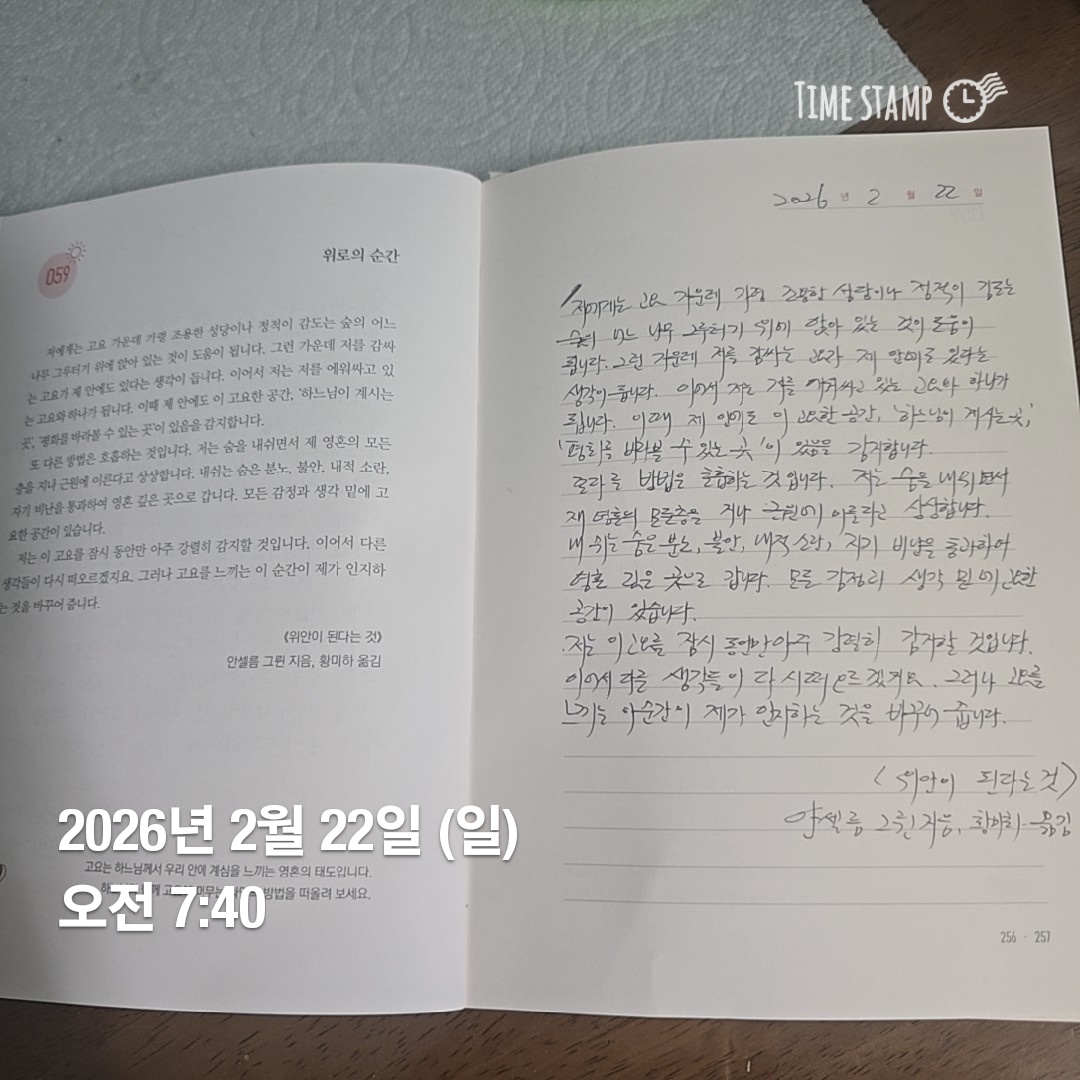 TIME STAMP
059
위로의 순간
저에게는 고요 가운데 가령 조용한 성당이나 정적이 감도는 숲의 어느
나무 그루터기 위에 앉아 있는 것이 도움이 됩니다. 그런 가운데 저를 감싸
는 고요가 제 안에도 있다는 생각이 듭니다. 이어서 저는 저를 에워싸고 있
는 고요와 하나가 됩니다. 이때 제 안에도 이 고요한 공간, '하느님이 계시는
곳', '평화를 바라볼 수 있는 곳'이 있음을 감지합니다.
또 다른 방법은 호흡하는 것입니다. 저는 숨을 내쉬면서 제 영혼의 모든
층을 지나 근원에 이른다고 상상합니다. 내쉬는 숨은 분노, 불안, 내적 소란,
자기 비난을 통과하여 영혼 깊은 곳으로 갑니다. 모든 감정과 생각 밑에 고
요한 공간이 있습니다.
저는 이 고요를 잠시 동안만 아주 강렬히 감지할 것입니다. 이어서 다른
생각들이 다시 떠오르겠지요. 그러나 고요를 느끼는 이 순간이 제가 인지하
는 것을 바꾸어 줍니다.
《위안이 된다는 것》
안셀름 그륀 지음, 황미하 옮김
고요는 하느님께서 우리 안에 계심을 느끼는 영혼의 태도입니다.
방법을 떠올려 보세요.
2026년 2월 22일 (일)
오전 7:40
2026 년 2 월 22 일
저에게는 고요 가운데 가령 조용한 성당이나 정적이 감도는
숲의 어느 나무 그루터기 위에 앉아 있는 것이 도움이
됩니다. 그런 가운데 저를 감싸는 고요가 제 안에도 있다는
생각이 듭니다. 이어서 저는 저를 에워싸고 있는 고요와 하나가
됩니다. 이때 제 안에도 이 고요한 공간, '하느님이 계시는 곳',
'평화를 바라볼 수 있는 곳'이 있음을 감지합니다.
또 다른 방법은 호흡하는 것입니다. 저는 숨을 내쉬면서
제 영혼의 모든층을 지나 근원에 이른다고 상상합니다.
내쉬는 숨은 분노, 불안, 내적 소란, 자기 비난을 통과하여
영혼 깊은 곳으로 갑니다. 모든 감정과 생각 밑에 고요한
공간이 있습니다.
저는 이 고요를 잠시 동안만 아주 강렬히 감지할 것입니다.
이어서 다른 생각들이 다시 떠오르겠지요. 그러나 고요를
느끼는 이순간이 제가 인지하는 것을 바꾸어 줍니다.
〈위안이 된다는 것〉
안셀름 그륀 지음, 황미하 옮김
256 · 257